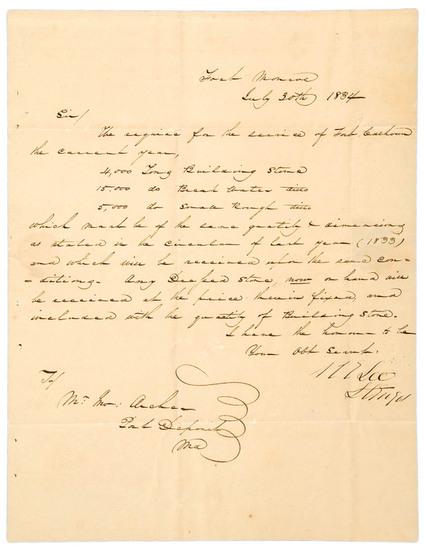 Fort Monroe
July 30th 1834
Sir/
The require for the service of Fort Calhoun
the current year,
4,000 Tons Building Stone
15,000 do Break Water ditto
5,000 do Small Rough ditto
which must be of the same quality & dimensions
as stated in the circular of last year (1833)
and which will be received upon the same con-
-ditions. Any Dressed Stone, now on hand will
be received at the price therein fixed, and
included with the quantity of Building Stone.
I have the honour to be
Your Obt Servt.
R E Lee
Lt Engrs
To/
Mr. Archer
Port Deposit
Md